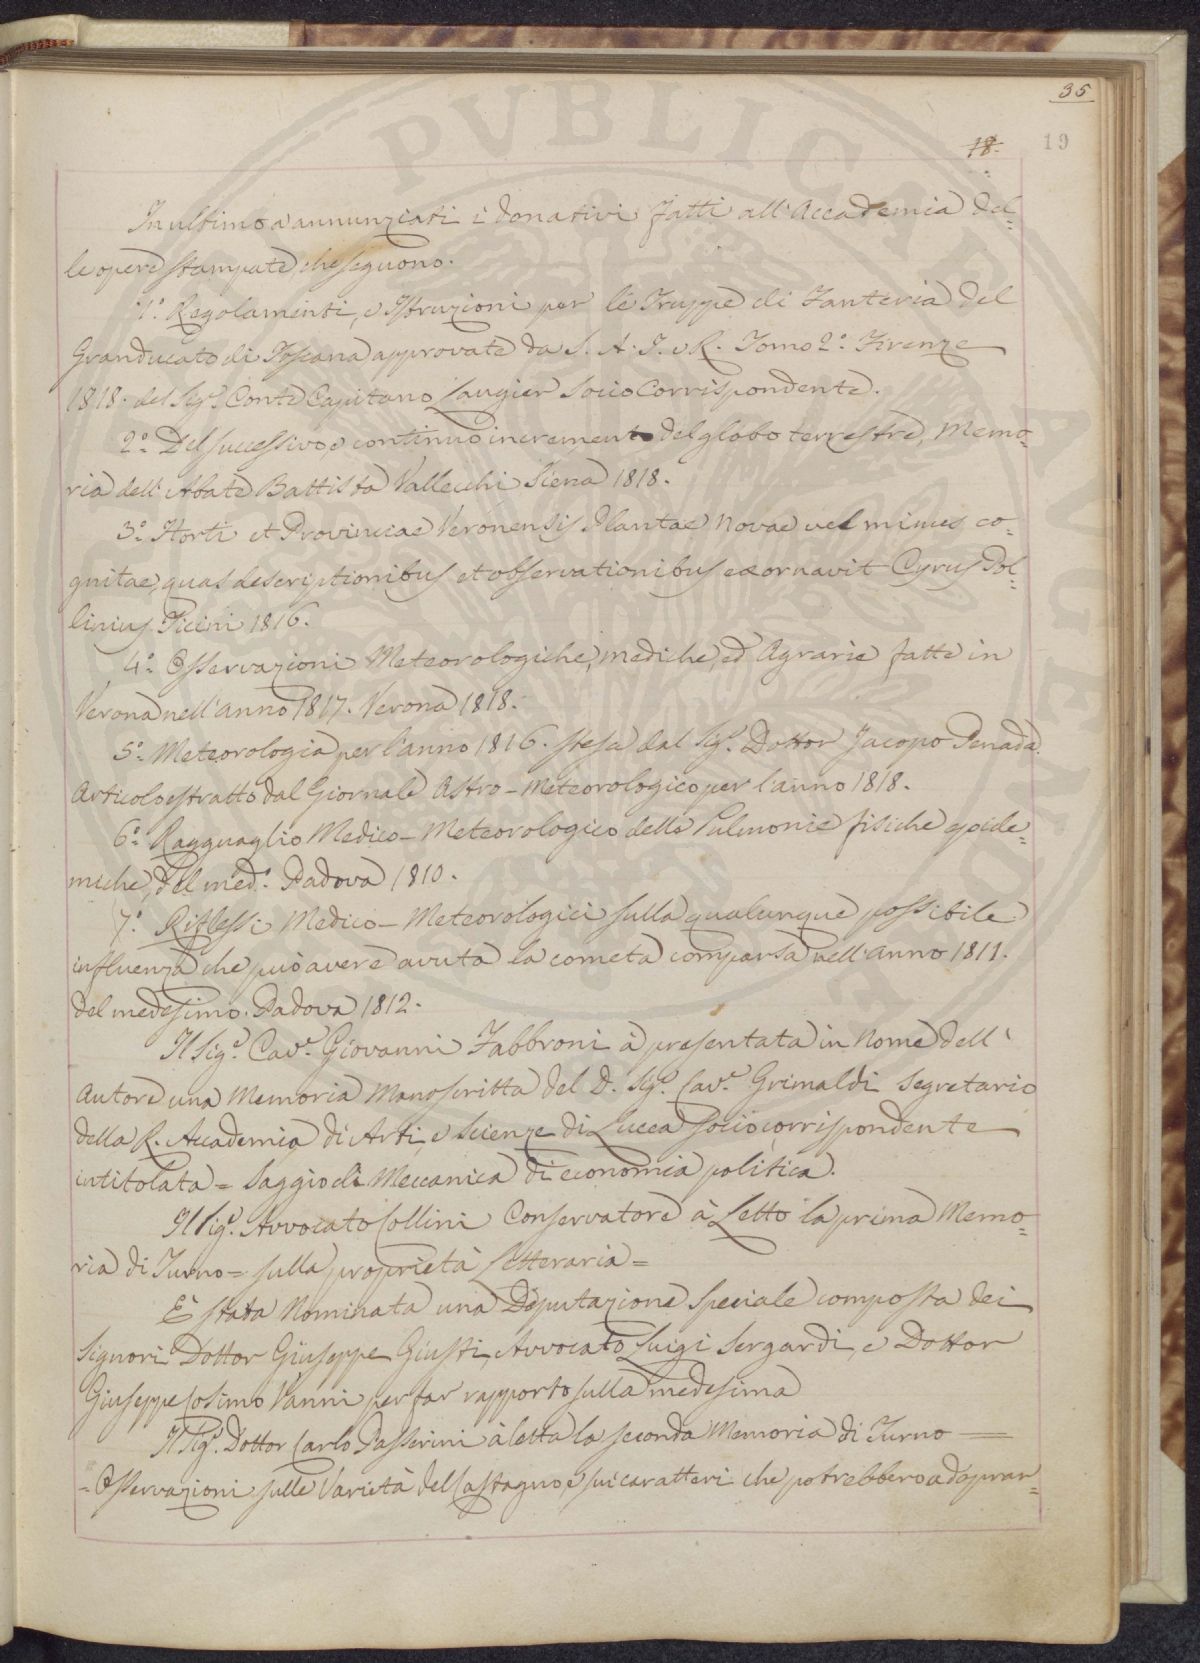 35
18.
19
In ultimo à annunziati i donativi fatti all'Accademia del=
le opere stampate, che seguono.
1.º Regolamenti, e Istruzioni per le Truppe di Fanteria del
Granducato di Toscana approvate da S. A. I. e R. Tomo 2.º Firenze
1818. del Sig.r Conte Capitano Laugier Socio Corrispondente.
2.º Del successivo, e continuo incremento del globo terrestre, Memo=
ria dell'Abate Battista Vallecchi Siena 1818.
3.º Horti et Provinciae Veronensis Plantae Novae vel minus co=
gnitae, quas descriptionibus et observationibus exornavit Cyrus Pol=
linius. Ticini 1816.
4.º Osservazioni Meteorologiche, mediche, ed Agrarie fatte in
Verona nell'anno 1817. Verona 1818.
5.º Meteorologia per l'anno 1816. stesa dal Sig.r Dottor Jacopo Penada.
Articolo estratto dal Giornale Astro-Meteorologico per l'anno 1818.
6.º Ragguaglio Medico-Meteorologico delle Pulmonie fisiche epide=
miche, del med.º Padova 1810.
7.º Riflessi Medico-Meteorologici sulla qualunque possibile
influenza che può avere avuta la cometa comparsa nell'anno 1811.
del medesimo. Padova 1812.
Il Sig.r Cav.r Giovanni Fabbroni à presentata in Nome dell'
Autore una Memoria Manoscritta del D. Sig.r Cav.r Grimaldi Segretario
della R. Accademia di Arti, e Scienze di Lucca socio corrispondente
intitolata = Saggio di Meccanica di economia politica.
Il Sig.r Avvocato Collini Conservatore à Letto la prima Memo=
ria di Turno = sulla proprietà Letteraria =
È stata Nominata una Deputazione Speciale composta dei
Signori Dottor Giuseppe Giusti, Avvocato Luigi Sergardi, e Dottor
Giuseppe Cosimo Vanni per far rapporto sulla medesima
Il Sig.r Dottor Carlo Passerini à letta la seconda Memoria di Turno
= Osservazioni sulle Varietà del Castagno, e sui caratteri che potrebbero adoprar=